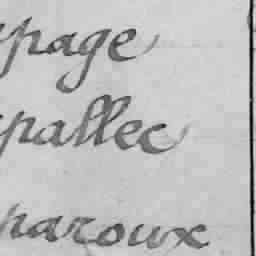 page
pallec
paroux